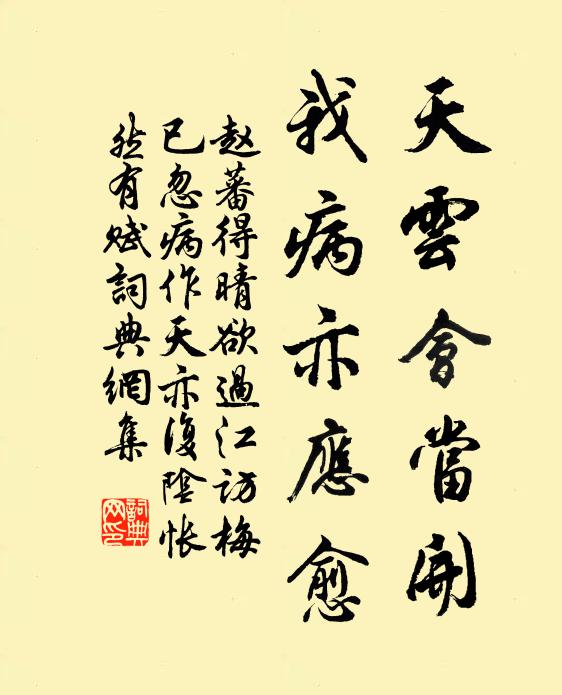 天雲會當開
我病亦應愈
赵蕃得晴欲過江訪梅
已忽病作天亦復陰悵
然有赋詞典網集
詞典网印